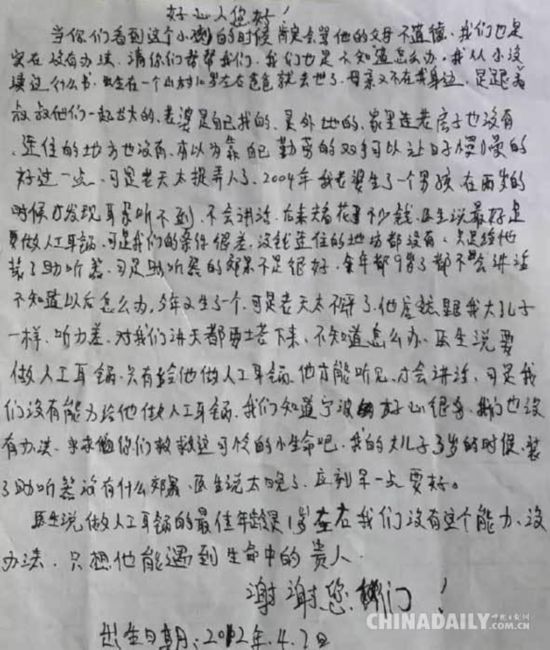 好心人您好!
当你们看到这个小孩的时候肯定会骂他的父母不道德,我们也是
实在没有办法,请你们帮帮我们,我们也是不知道怎么办,我从小没
读过什么书,出生在一个山村10岁左右爸爸就去世了,母亲又不在我身边,是跟着
叔叔他们一起长大的,老婆是自己找的,是外地的,家里连老房子也没有
,连住的地方也没有,本以为靠自己勤劳的双手可以让日子慢慢的
好过一点,可是老天太捉弄人了,2004年我老婆生了一个男孩,在两岁的
时候才发现耳朵听不到,不会讲话,后来为看花了不少钱,医生说最好是
要做人工耳蜗,可是我们的条件很差,没钱连住的地方都没有,只是给他
装了助听器,可是助听器的效果不是很好,今年都9岁了都不会讲话
不知道以后怎么办,今年又生了个,可是老天太不公了,他居然跟我大儿子
一样,听力差,对我们讲天都要塌下来,不知道怎么办,医生说要
做人工耳蜗,只有给他做人工耳蜗,他才能听见,才会讲话,可是我
们没有能力给他做人工耳蜗,我们知道宁波的好心很多,我们也没
有办法,求求你们救救这可怜的小生命吧,我的大儿子3岁的时候,装
了助听器没有什么效果,医生说太晚了,应该早一点要好。
医生说做人工耳蜗的最佳年龄是1岁左右我们没有这个能力,没
办法,只想他能遇到生命中的贵人.
谢谢您们!
出生日期:2012年.4.2日
CHINADAILY.COM.CN